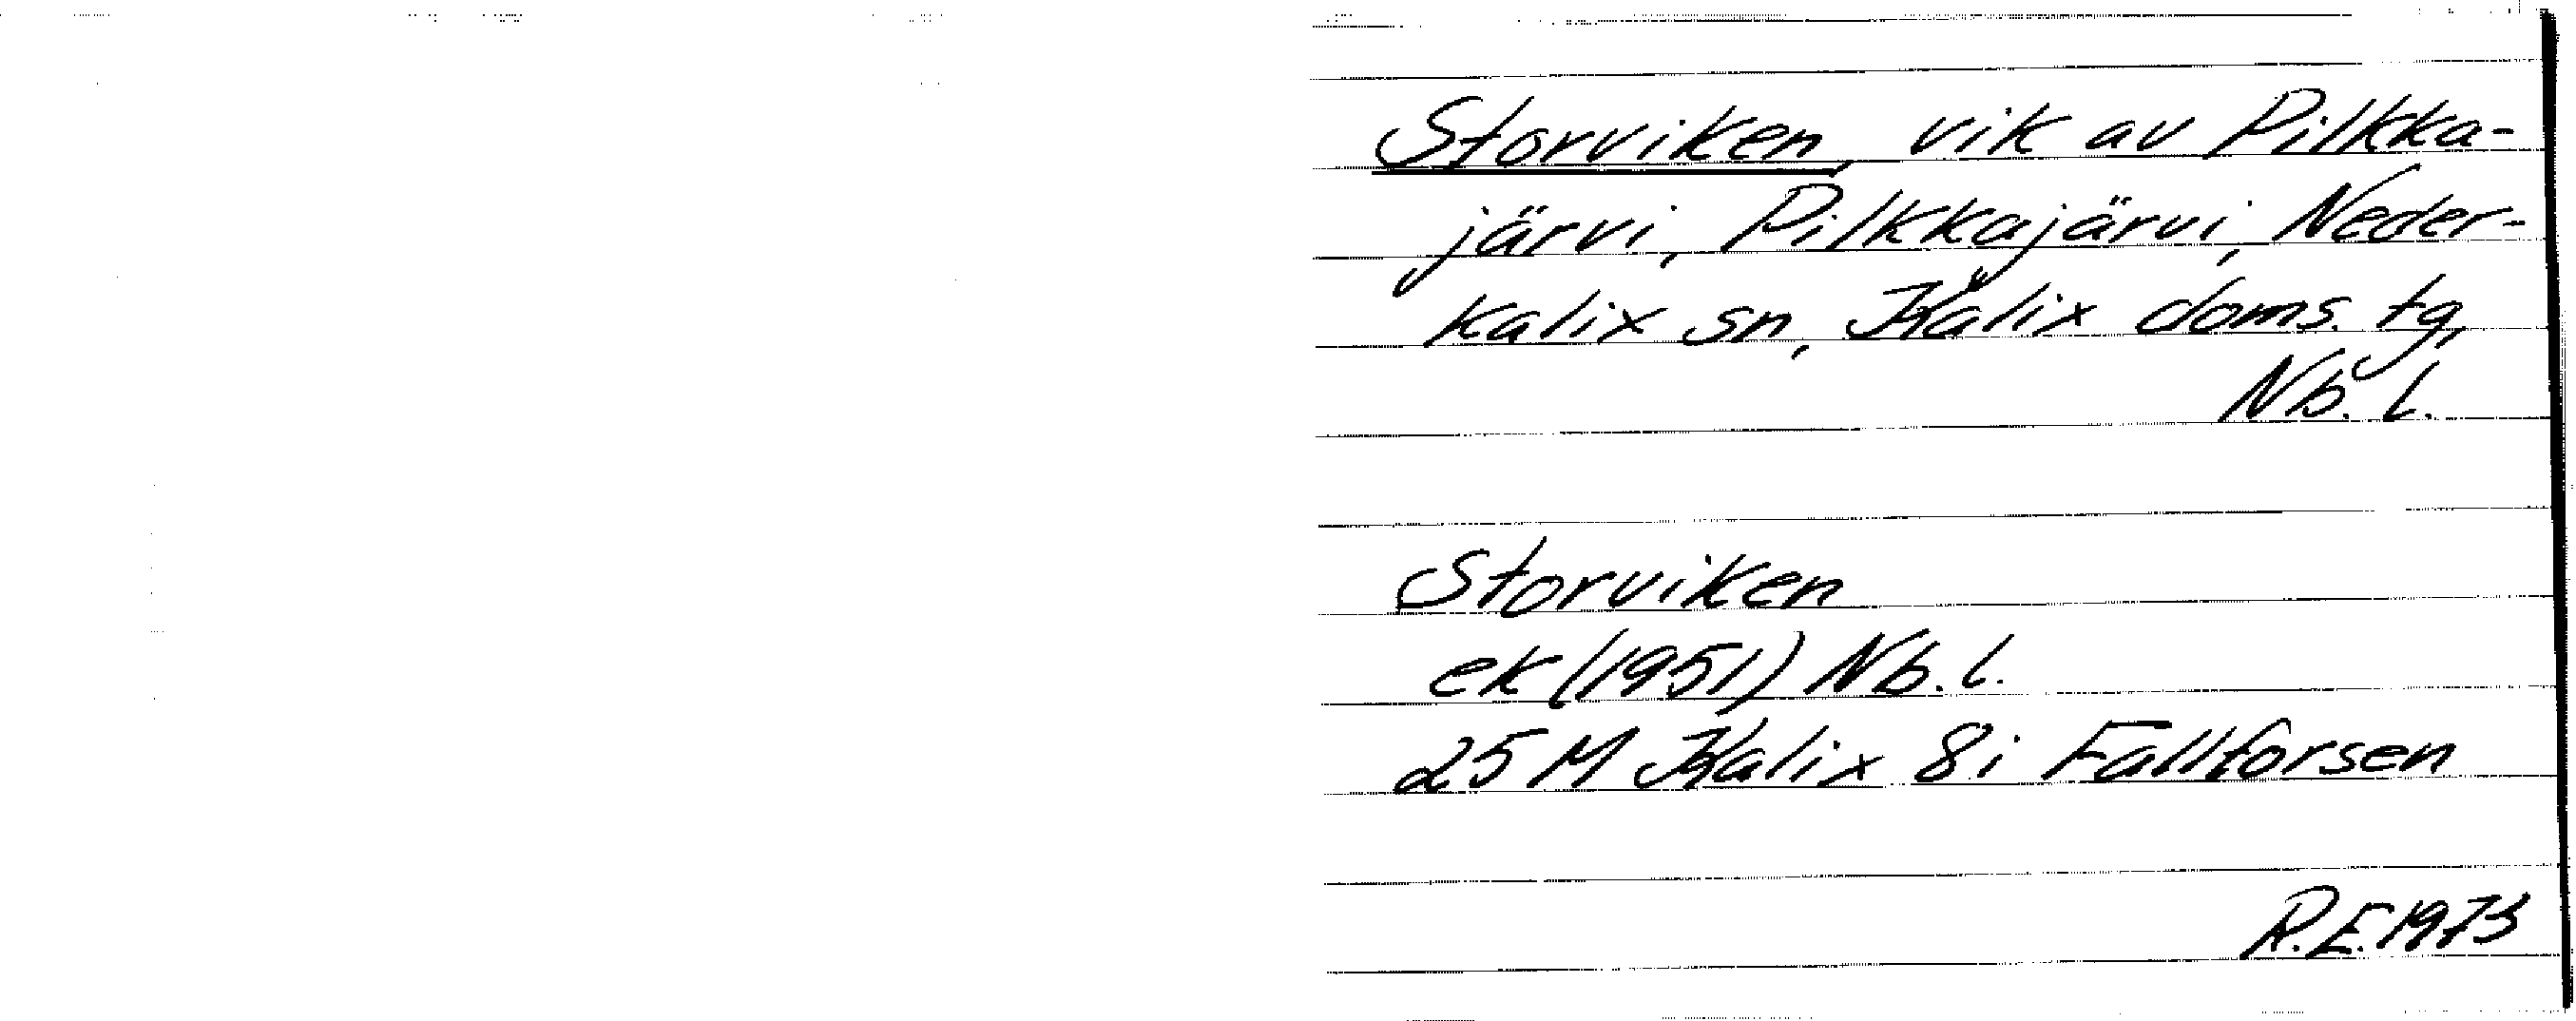 Storviken, vik av Pilkka-
järvi, Pilkkajärvi, Neder-
kalix sn, Kalix doms. tg,
Nb. l.
Storviken
ek (1951) Nb. l.
25 M Kalix 8i Fallforsen
R.E. 1973